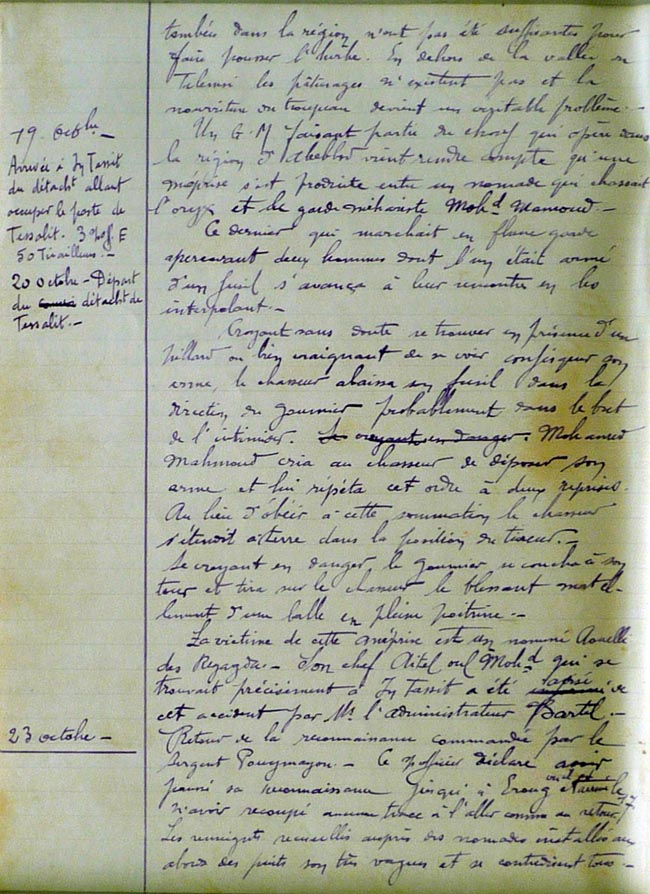 tombées dans la région n'ont pas été suffisantes pour
faire pousser l'herbe. En dehors de la vallée du
Tilemsi les pâturages n'existent pas et la
nourriture du troupeau devient un véritable problème.-
Un G.M faisant partie du qui opère dans
la région d' vient rendre compte qu'une
méprise s'est produite entre un nomade qui chassait
l'oryx et le garde méhariste Mohd Mamoud.-
Ce dernier qui marchait en flanc garde
apercevant deux hommes dont l'un était armé
d'un fusil s'avança à leur rencontre en les
interpelant.-
Croyant sans doute se trouver en présence d'un
pillard ou bien craignant de se voir confisquer son
arme, le chasseur abaissa son fusil dans la
direction du goumier probablement dans le but
de l'intimider. Se croyant en danger. Mohamed
Mahmoud cria au chasseur de déposer son
arme et lui répéta cet ordre à deux reprises.
Au lieu d'obéir à cette sommation le chasseur
s'étendit à terre dans la position du tireur.-
Se croyant en danger le goumier se coucha à son
tour et tira sur le chasseur le blessant mortel-
lement d'une balle en pleine poitrine.-
La victime de cette méprise est un nommé
des Regagda.- Son chef Aitel oul Mohd qui se
trouvait précisément à In Tassit a été avisé de
cet accident par Mr l'administrateur Bartel.-
Retour de la reconnaissance commandée par le
Sergent Pouymayon.- Ce s/officier déclare avoir
poussé sa reconnaissance jusqu'à et
n'avoir recoupé aucune trace à l'aller comme au retour.
Les renseignts recueillis auprès des nomades installés aux
abords des puits son très vagues et se contredisent tous.-
19 Octobre -
Arrivée à In Tassit
du détacht allant
occuper le poste de
Tessalit. 3 s/off. E
50 Tirailleurs.-
20 octobre - Départ
du détacht de
Tessalit.-
23 octobre -